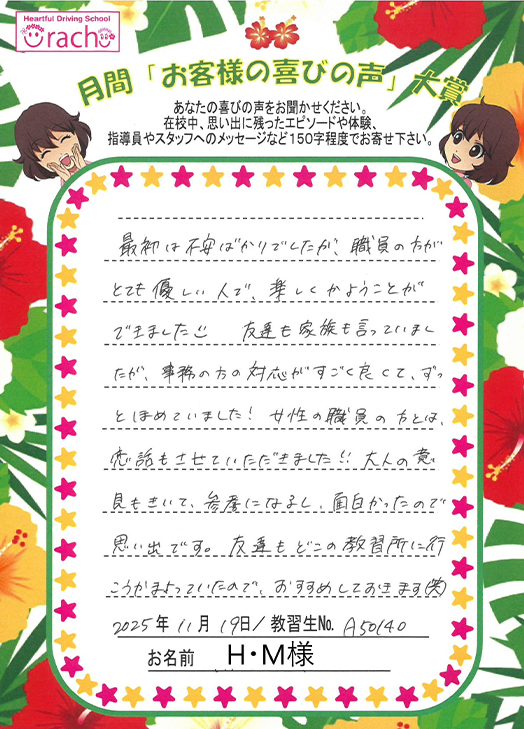 Heartful Driving School
Urach
月間「お客様の喜びの声」大賞
あなたの喜びの声をお聞かせください。
在校中、思い出に残ったエピソードや体験、
指導員やスタッフへのメッセージなど150字程度でお寄せ下さい。
最初は不安ばかりでしたが、職員の方が
とても優しい人で、楽しくかようことが
できました 友達も家族も言っていまし
たが、事務の方の対応がすごく良くて、ずっ
とほめていました！女性の職員の方とは、
恋話もさせていただきました!! 大人の意
見もきいて、参考になるし、面白かったので
思い出です。友達もどこの教習所に行
こうかまよっていたので、おすすめしておきます(笑)
2025年11月19日/教習生No. A50140
お名前 H・M様